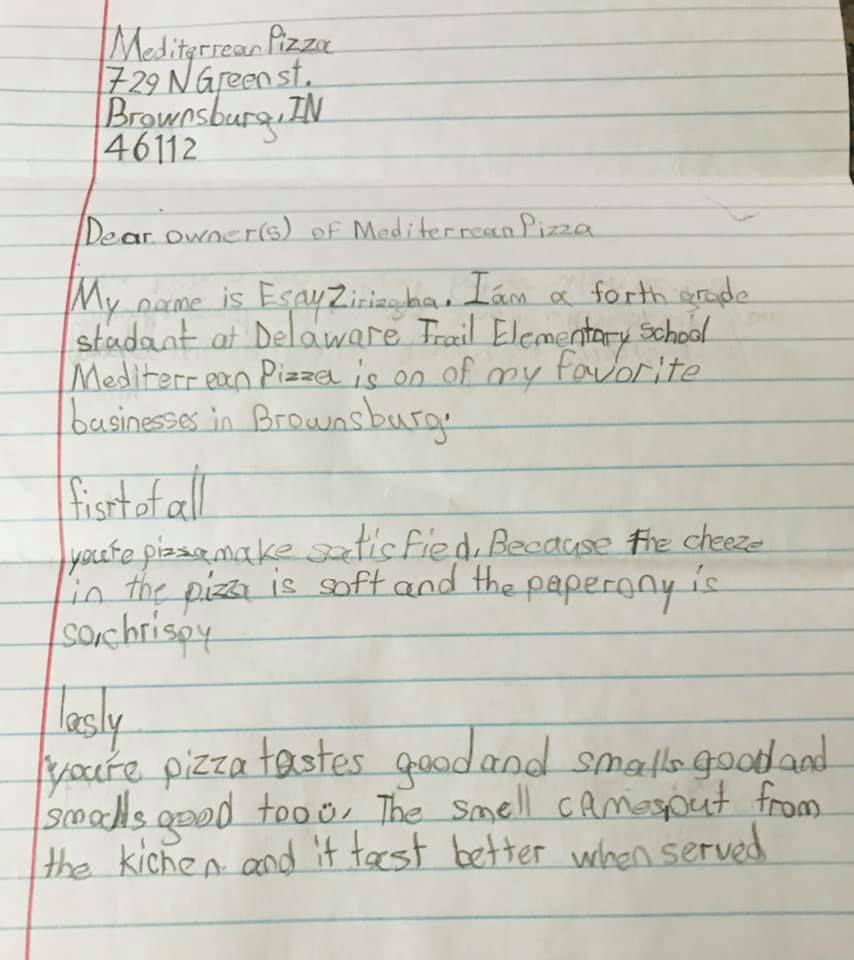 Mediterrean Pizza
729 N Green st.
Brownsburg, IN
46112
Dear owner(s) of Mediterrean Pizza
My name is Esay Zirizgha. I am a forth grade
stadant at Delaware Trail Elementary school
Mediterrean Pizza is on of my favorite
businesses in Brownsburg.
fisrt of all
you're pizza make satisfied. Because the cheeze
in the pizza is soft and the paperony is
so, chrispy
lasly
you're pizza tastes good and smalls good and
smalls good tooo. The smell cames out from
the kichen and it tast better when served